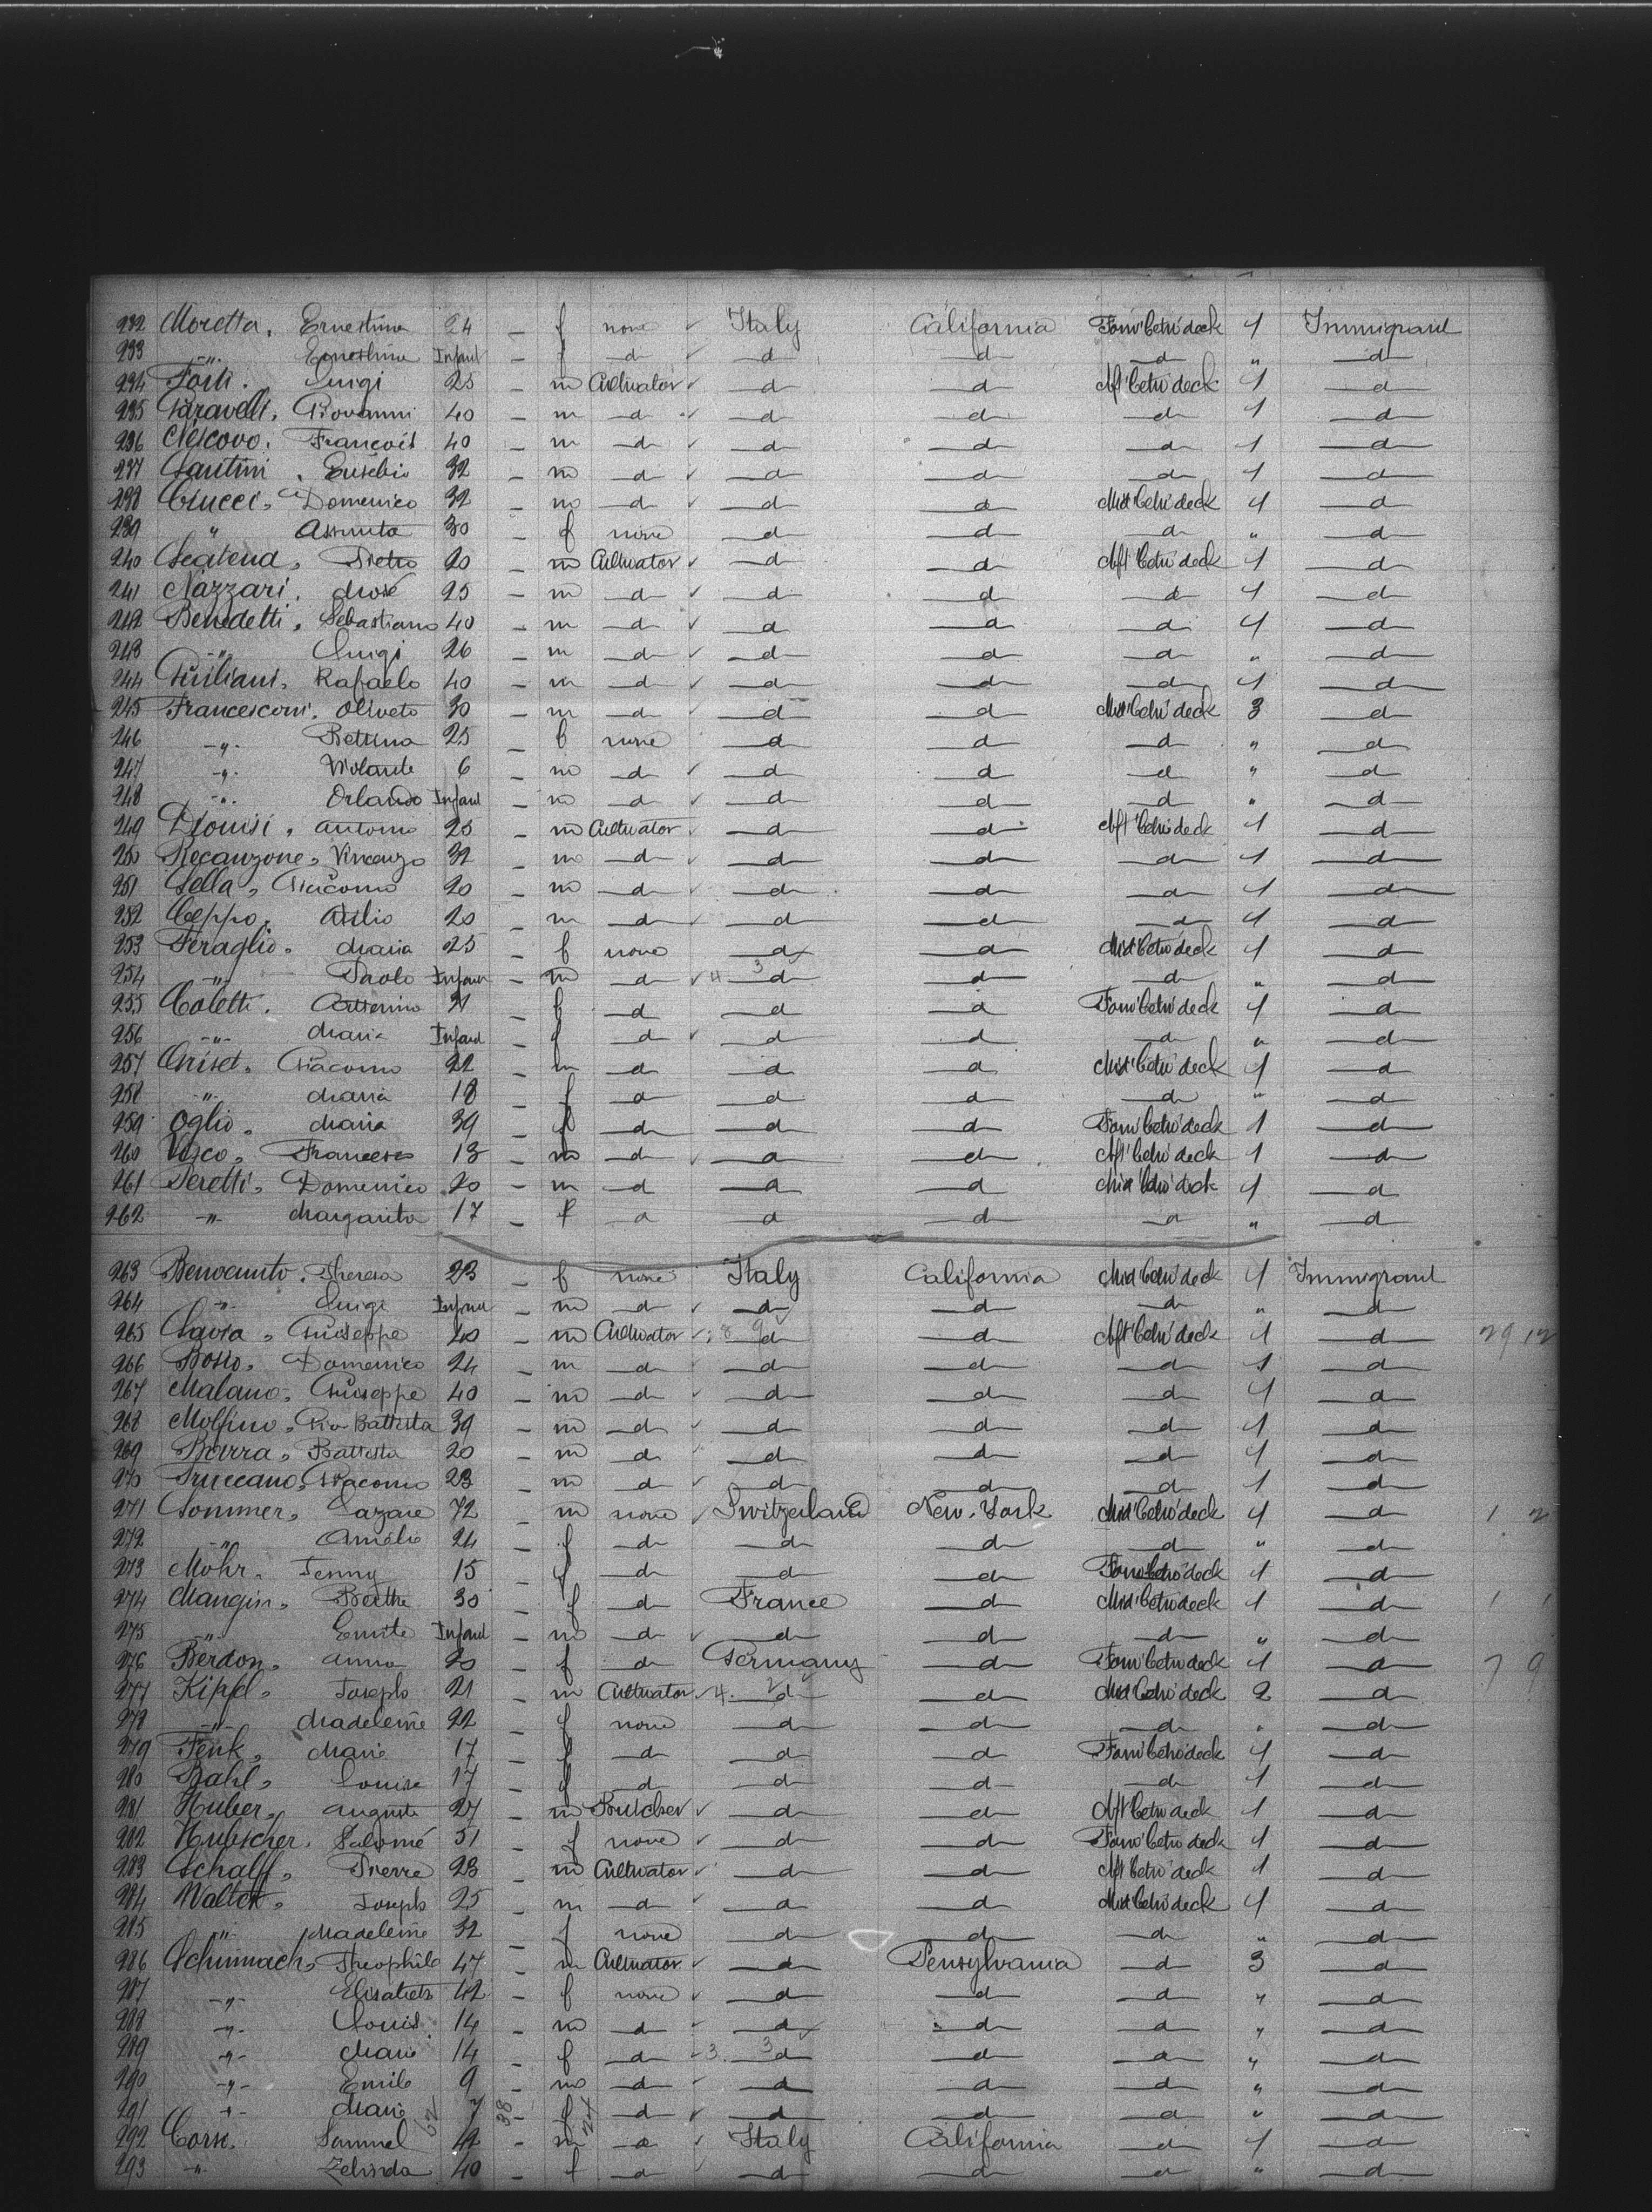 232 Moretta. Ernestina 24 - f none ✓ Italy California Forw' betw' deck 1 Immigrant
233 -"- Ernestina Infant - f d ✓ d d d " d
234 Forti. Luigi 25 - m Cultivator ✓ d d Aft' betw' deck 1 d
235 Paravelli. Giovanni 40 - m d ✓ d d d 1 d
236 Nescovo. François 40 - m d ✓ d d d 1 d
237 Santini. Eusebio 32 - m d ✓ d d d 1 d
238 Ciucci. Domenico 32 - m d ✓ d d Mid' betw' deck 1 d
239 " Assunta 30 - f none d d d " d
240 Scatena. Pietro 20 - m Cultivator ✓ d d Aft' betw' deck 1 d
241 Nazzari. Mosé 25 - m d ✓ d d d 1 d
242 Benedetti. Sebastiano 40 - m d ✓ d d d 1 d
243 -"- Luigi 26 - m d ✓ d d d " d
244 Giuliani. Rafaelo 40 - m d ✓ d d d 1 d
245 Francesconi. Oliveto 30 - m d ✓ d d Mid' betw' deck 3 d
246 -"- Bettina 25 - f none d d d " d
247 -"- Violante 6 - m d ✓ d d d " d
248 -"- Orlando Infant - m d ✓ d d d " d
249 Dionisi. Antonio 25 - m Cultivator ✓ d d Aft' betw' deck 1 d
250 Recanzone. Vincenzo 32 - m d ✓ d d d 1 d
251 Sella. Giacomo 20 - m d ✓ d d d 1 d
252 Ceppo. Atilio 20 - m d ✓ d d d 1 d
253 Feraglio. Maria 25 - f none d d Mid' betw' deck 1 d
254 -"- Paolo Infant - m d ✓ 4 3 d d d " d
255 Coletti. 21 - f d d d Forw' betw' deck 1 d
256 -"- Maria Infant - f d ✓ d d d " d
257 Giacomo 22 - m d d d Mid' betw' deck 1 d
258 -"- Maria 18 - f d d d d " d
259 Oglio. Maria 39 - f d d d Forw' betw' deck 1 d
260 Francesco 13 - m d ✓ d d Aft' betw' deck 1 d
261 Peretti. Domenico 20 - m d d d Mid' betw' deck 1 d
262 -"- Margarita 17 - f d d d d " d
263 Benvenuto. Theresa 23 - f none Italy California Mid' betw' deck 1 Immigrant
264 -"- Luigi Infant - m d ✓ d d d " d
265 Giuseppe 40 - m Cultivator ✓ d d Aft' betw' deck 1 d 29 12
266 Domenico 24 - m d ✓ d d d 1 d
267 Malano. Giuseppe 40 - m d ✓ d d d 1 d
268 Molfino. Gio Battista 39 - m d ✓ d d d 1 d
269 Battista 20 - m d ✓ d d d 1 d
270 Truccano. Giacomo 23 - m d ✓ d d d 1 d
271 Sommer. Lazare 72 - m none ✓ Switzerland New. York Mid' betw' deck 1 d 1 2
272 -"- Amélie 24 - f d d d d " d
273 Mohr. Jenny 15 - f d d d Forw' betw' deck 1 d
274 Mangin. Berthe 30 - f d France d Mid' betw' deck 1 d 1 1
275 -"- Emile Infant - m d ✓ d d d " d
276 Berdon. Anna 20 - f d Germany d Forw' betw' deck 1 d 7 9
277 Kipfel. Joseph 21 - m Cultivator ✓ 4 2 d d Mid' betw' deck 2 d
278 -"- Madeleine 22 - f none d d d " d
279 Fenk. Marie 17 - f d d d Forw' betw' deck 1 d
280 Bahl. Louise 17 - f d d d d 1 d
281 Huber. Auguste 27 - m Butcher ✓ d d Aft' betw' deck 1 d
282 Hubscher. Salomé 51 - f none ✓ d d Forw' betw' deck 1 d
283 Schalff. Pierre 23 - m Cultivator ✓ d d Aft' betw' deck 1 d
284 Walter. Joseph 25 - m d ✓ d d Mid' betw' deck 1 d
285 -"- Madeleine 32 - f none d d d " d
286 Schumach. Theophile 47 - m Cultivator ✓ d Pensylvania d 3 d
287 -"- Elisabeth 42 - f none ✓ d d d " d
288 -"- Louis 14 - m d ✓ d d d " d
289 -"- Marie 14 - f d 3 3 d d d " d
290 -"- Emile 9 - m d ✓ d d d " d
291 -"- Marie 7 - f d ✓ d d d " d
292 Corsi. Samuel 42 - m d ✓ Italy California d 1 d
293 -"- Zelinda 40 - f d ✓ d d d " d